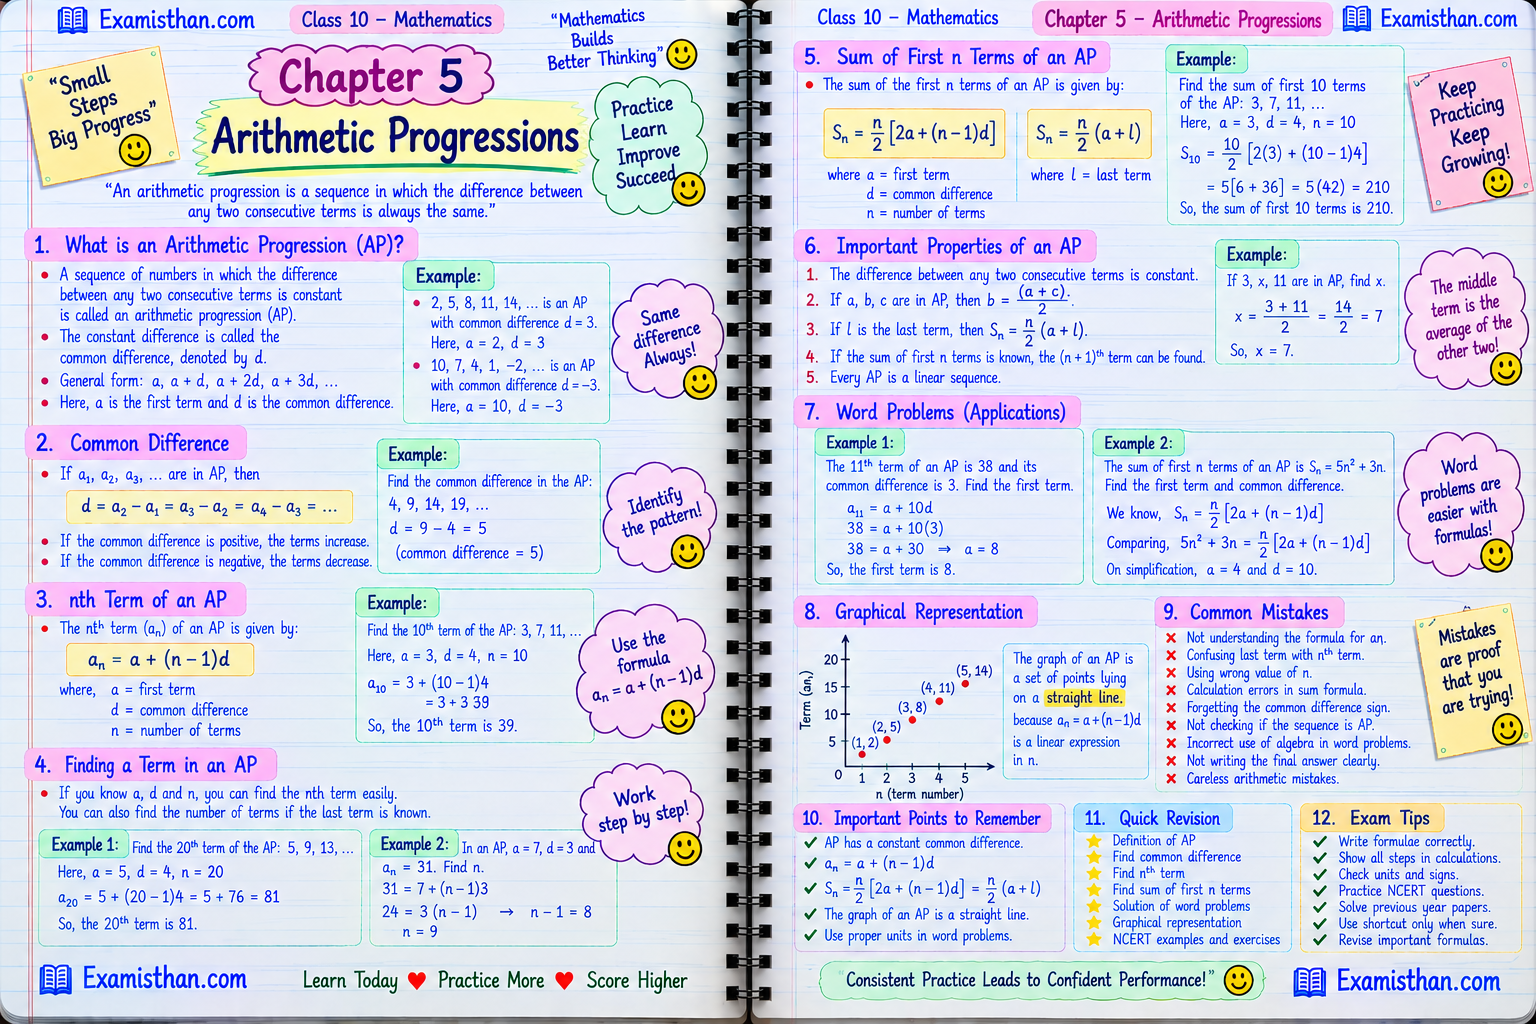 Examisthan.com
Class 10 – Mathematics
"Mathematics
Builds
Better Thinking"
"Small
Steps
Big Progress"
Chapter 5
Arithmetic Progressions
Practice
Learn
Improve
Succeed
"An arithmetic progression is a sequence in which the difference between
any two consecutive terms is always the same."
1. What is an Arithmetic Progression (AP)?
• A sequence of numbers in which the difference
between any two consecutive terms is constant
is called an arithmetic progression (AP).
• The constant difference is called the
common difference, denoted by d.
• General form: a, a + d, a + 2d, a + 3d, ...
• Here, a is the first term and d is the common difference.
Example:
• 2, 5, 8, 11, 14, ... is an AP
with common difference d = 3.
Here, a = 2, d = 3
• 10, 7, 4, 1, −2, ... is an AP
with common difference d = −3.
Here, a = 10, d = −3
Same
difference
Always!
2. Common Difference
• If a₁, a₂, a₃, ... are in AP, then
d = a₂ − a₁ = a₃ − a₂ = a₄ − a₃ = ...
• If the common difference is positive, the terms increase.
• If the common difference is negative, the terms decrease.
Example:
Find the common difference in the AP:
4, 9, 14, 19, ...
d = 9 − 4 = 5
(common difference = 5)
Identify
the pattern!
3. nth Term of an AP
• The nᵗʰ term (aₙ) of an AP is given by:
aₙ = a + (n − 1)d
where, a = first term
d = common difference
n = number of terms
Example:
Find the 10ᵗʰ term of the AP: 3, 7, 11, ...
Here, a = 3, d = 4, n = 10
a₁₀ = 3 + (10 − 1)4
= 3 + 3 39
So, the 10ᵗʰ term is 39.
Use the
formula
aₙ = a + (n − 1)d
4. Finding a Term in an AP
• If you know a, d and n, you can find the nth term easily.
You can also find the number of terms if the last term is known.
Work
step by step!
Example 1: Find the 20ᵗʰ term of the AP: 5, 9, 13, ...
Here, a = 5, d = 4, n = 20
a₂₀ = 5 + (20 − 1)4 = 5 + 76 = 81
So, the 20ᵗʰ term is 81.
Example 2: In an AP, a = 7, d = 3 and
aₙ = 31. Find n.
31 = 7 + (n − 1)3
24 = 3 (n − 1) → n − 1 = 8
n = 9
Examisthan.com
Learn Today ♥ Practice More ♥ Score Higher
Class 10 – Mathematics
Chapter 5 – Arithmetic Progressions
Examisthan.com
5. Sum of First n Terms of an AP
• The sum of the first n terms of an AP is given by:
Sₙ = n/2 [2a + (n − 1)d]
Sₙ = n/2 (a + l)
where a = first term
d = common difference
n = number of terms
where l = last term
Example:
Find the sum of first 10 terms
of the AP: 3, 7, 11, ...
Here, a = 3, d = 4, n = 10
S₁₀ = 10/2 [2(3) + (10 − 1)4]
= 5[6 + 36] = 5(42) = 210
So, the sum of first 10 terms is 210.
Keep
Practicing
Keep
Growing!
6. Important Properties of an AP
1. The difference between any two consecutive terms is constant.
2. If a, b, c are in AP, then b = (a + c)/2.
3. If l is the last term, then Sₙ = n/2 (a + l).
4. If the sum of first n terms is known, the (n + 1)ᵗʰ term can be found.
5. Every AP is a linear sequence.
Example:
If 3, x, 11 are in AP, find x.
x = (3 + 11)/2 = 14/2 = 7
So, x = 7.
The middle
term is the
average of the
other two!
7. Word Problems (Applications)
Example 1:
The 11ᵗʰ term of an AP is 38 and its
common difference is 3. Find the first term.
a₁₁ = a + 10d
38 = a + 10(3)
38 = a + 30 → a = 8
So, the first term is 8.
Example 2:
The sum of first n terms of an AP is Sₙ = 5n² + 3n.
Find the first term and common difference.
We know, Sₙ = n/2 [2a + (n − 1)d]
Comparing, 5n² + 3n = n/2 [2a + (n − 1)d]
On simplification, a = 4 and d = 10.
Word
problems are
easier with
formulas!
8. Graphical Representation
Term (aₙ)
20
15
10
5
0
1 2 3 4 5
n (term number)
(1, 2)
(2, 5)
(3, 8)
(4, 11)
(5, 14)
The graph of an AP is
a set of points lying
on a straight line.
because aₙ = a + (n − 1)d
is a linear expression
in n.
9. Common Mistakes
✗ Not understanding the formula for an.
✗ Confusing last term with nᵗʰ term.
✗ Using wrong value of n.
✗ Calculation errors in sum formula.
✗ Forgetting the common difference sign.
✗ Not checking if the sequence is AP.
✗ Incorrect use of algebra in word problems.
✗ Not writing the final answer clearly.
✗ Careless arithmetic mistakes.
Mistakes
are proof
that you
are trying!
10. Important Points to Remember
✓ AP has a constant common difference.
✓ aₙ = a + (n − 1)d
✓ Sₙ = n/2 [2a + (n − 1)d] = n/2 (a + l)
✓ The graph of an AP is a straight line.
✓ Use proper units in word problems.
11. Quick Revision
Definition of AP
Find common difference
Find nᵗʰ term
Find sum of first n terms
Solution of word problems
Graphical representation
NCERT examples and exercises
12. Exam Tips
✓ Write formulae correctly.
✓ Show all steps in calculations.
✓ Check units and signs.
✓ Practice NCERT questions.
✓ Solve previous year papers.
✓ Use shortcut only when sure.
✓ Revise important formulas.
"Consistent Practice Leads to Confident Performance!"
Examisthan.com